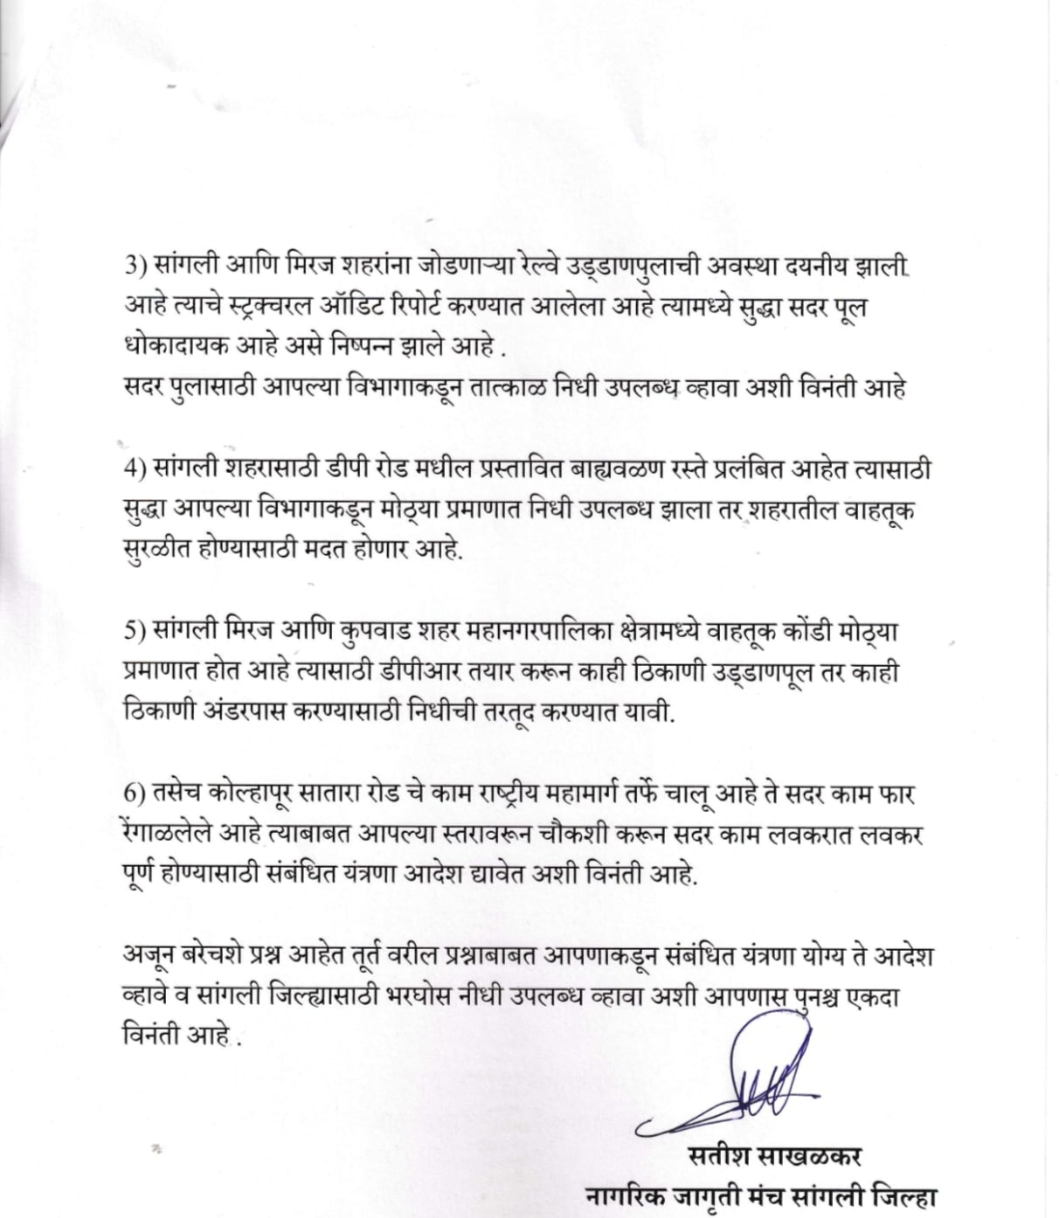 3) सांगली आणि मिरज शहरांना जोडणाऱ्या रेल्वे उड्डाणपुलाची अवस्था दयनीय झाली
आहे त्याचे स्ट्रक्चरल ऑडिट रिपोर्ट करण्यात आलेला आहे त्यामध्ये सुद्धा सदर पूल
धोकादायक आहे असे निष्पन्न झाले आहे .
सदर पुलासाठी आपल्या विभागाकडून तात्काळ निधी उपलब्ध व्हावा अशी विनंती आहे
4) सांगली शहरासाठी डीपी रोड मधील प्रस्तावित बाह्यवळण रस्ते प्रलंबित आहेत त्यासाठी
सुद्धा आपल्या विभागाकडून मोठ्या प्रमाणात निधी उपलब्ध झाला तर शहरातील वाहतूक
सुरळीत होण्यासाठी मदत होणार आहे.
5) सांगली मिरज आणि कुपवाड शहर महानगरपालिका क्षेत्रामध्ये वाहतूक कोंडी मोठ्या
प्रमाणात होत आहे त्यासाठी डीपीआर तयार करून काही ठिकाणी उड्डाणपूल तर काही
ठिकाणी अंडरपास करण्यासाठी निधीची तरतूद करण्यात यावी.
6) तसेच कोल्हापूर सातारा रोड चे काम राष्ट्रीय महामार्ग तर्फे चालू आहे ते सदर काम फार
रेंगाळलेले आहे त्याबाबत आपल्या स्तरावरून चौकशी करून सदर काम लवकरात लवकर
पूर्ण होण्यासाठी संबंधित यंत्रणा आदेश द्यावेत अशी विनंती आहे.
अजून बरेचशे प्रश्न आहेत तूर्त वरील प्रश्नाबाबत आपणाकडून संबंधित यंत्रणा योग्य ते आदेश
व्हावे व सांगली जिल्ह्यासाठी भरघोस नीधी उपलब्ध व्हावा अशी आपणास पुनश्च एकदा
विनंती आहे .
सतीश साखळकर
नागरिक जागृती मंच सांगली जिल्हा